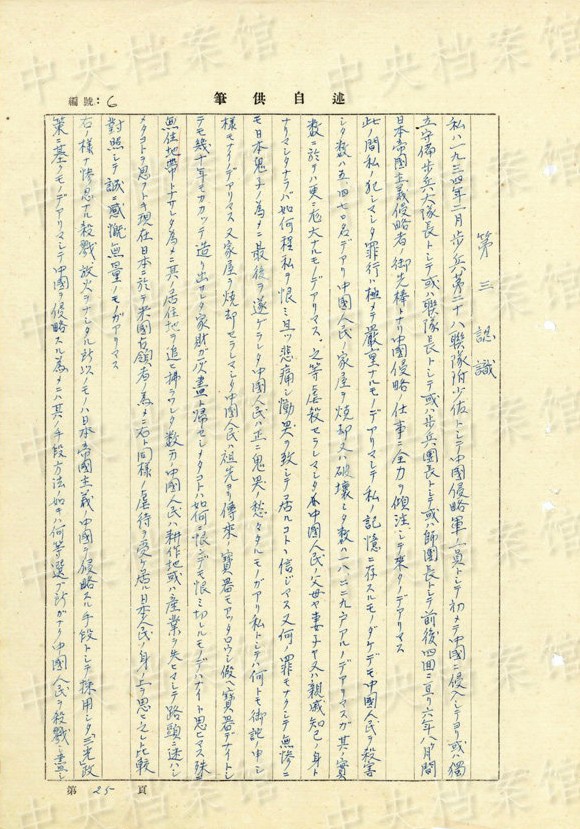 編號：6
筆供自述
第三 認識
私ハ一九三四年二月歩兵第二十八聯隊附少佐トシテ中國侵略軍ノ一員トシテ初メテ中國ニ侵入シテヨリ或ハ獨
立守備歩兵大隊長トシテ或ハ聯隊長トシテ或ハ歩兵團長トシテ或ハ師團長トシテ前後四回ニ亙リ六年八月間
日本帝國主義侵略者ノ御先棒トナリ中國侵略ノ仕事ニ全力ヲ傾注シテ來タノデアリマス
此ノ間私ノ犯シマシタ罪行ハ極メテ嚴重ナルモノデアリマシテ私ノ記憶ニ存スルモノダケデモ中國人民ヲ殺害
シタ数ハ五、四七〇名デアリ中國人民ノ家屋ヲ焼却又ハ破壞シタ数ハ一八、二二九戸アルノデアリマスガ其ノ實
数ニ於テハ更ニ厖大ナルモノデアリマス。之等虐殺セラレマシタ中國人民ノ父母ヤ妻子ヤ又ハ親戚知己ノ身ト
ナリマシタナラバ如何程私ヲ恨ミ且ツ悲痛シ慟哭ヲ致シテ居ルコトト信ジマス又何ノ罪モナクシテ無慘ニ
モ日本鬼子ノ為メニ最後ヲ遂ゲラレタ中國人民ハ正ニ鬼哭ノ愁々タルモノガアリ私トシテハ何トモ御詫ノ申シ
様モナイノデアリマス又家屋ヲ焼却セラレマシタ中國人民ハ祖先ヨリ傳來ノ寶器モアッタロウシ假ヘ寶器ナイトシ
テモ幾十年モカカッテ造リ出サレタ家財ガ一次盡ト帰セシメタコトハ如何ニ恨ンデモ恨ミ切レルモノデハナイト思ヒマス殊ニ
無住地帶トナサレタ為メニ其ノ居住地ヲ追ヒ拂ラワレタ数万ノ中國人民ハ耕作地或ハ産業ヲ失ヒマシテ路頭ニ迷ハシ
メタコトヲ思フトキ現在日本ニ於テ米國占領者ノ為メニ右ト同様ノ虐待ヲ受ケ居ル日本人民ノ身ノ上ヲ思ヒ之レト比較
對照シテ誠ニ感慨無量ノモノガアリマス
右ノ様ナ慘忍ナル殺戮放火ヲナシタル所以ノモノハ日本帝國主義ガ中國ヲ侵略スル手段トシテ採用シタ三光政
策ニ基クモノデアリマシテ中國ヲ侵略スル為メニハ其ノ手段方法ノ如キハ何等選ブ所ガナク中國人民ヲ殺戮シ盡シ
第 25 頁
中央档案馆